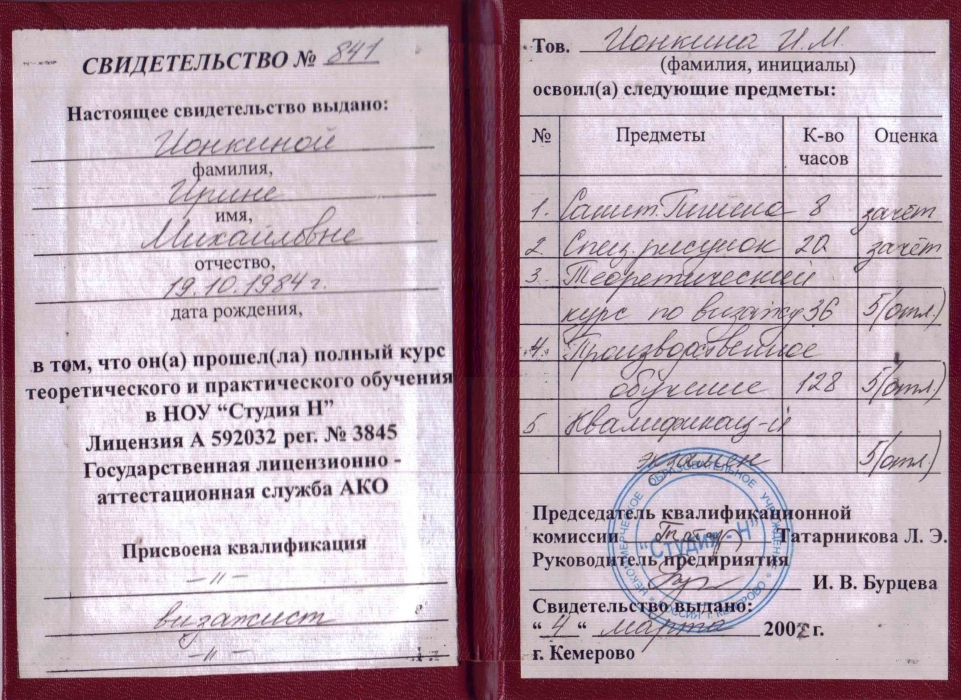 СВИДЕТЕЛЬСТВО № 841
Настоящее свидетельство выдано:
Ионкиной
фамилия,
Ирине
имя,
Михайловне
отчество,
19.10.1984 г.
дата рождения,
в том, что он(а) прошел(ла) полный курс
теоретического и практического обучения
в НОУ “Студия Н”
Лицензия А 592032 рег. № 3845
Государственная лицензионно -
аттестационная служба АКО
Присвоена квалификация
–〃–
визажист
–〃–
Тов. Ионкина И.М.
(фамилия, инициалы)
освоил(а) следующие предметы:
№ Предметы К-во часов Оценка
1. Санит. Гигиена 8 зачёт
2. Спец. рисунок 20 зачёт
3. Теоретический
курс по визажу 36 5(отл.)
4. Производственное
обучение 128 5(отл.)
5. Квалификац-й
экзамен 5(отл)
Председатель квалификационной
комиссии Татарникова Л. Э.
Руководитель предприятия
И. В. Бурцева
Свидетельство выдано:
“ 4 “ марта 200 г.
г. Кемерово
НЕКОММЕРЧЕСКОЕ ОБРАЗОВАТЕЛЬНОЕ УЧРЕЖДЕНИЕ
“СТУДИЯ - Н”
РОССИЯ г. КЕМЕРОВО